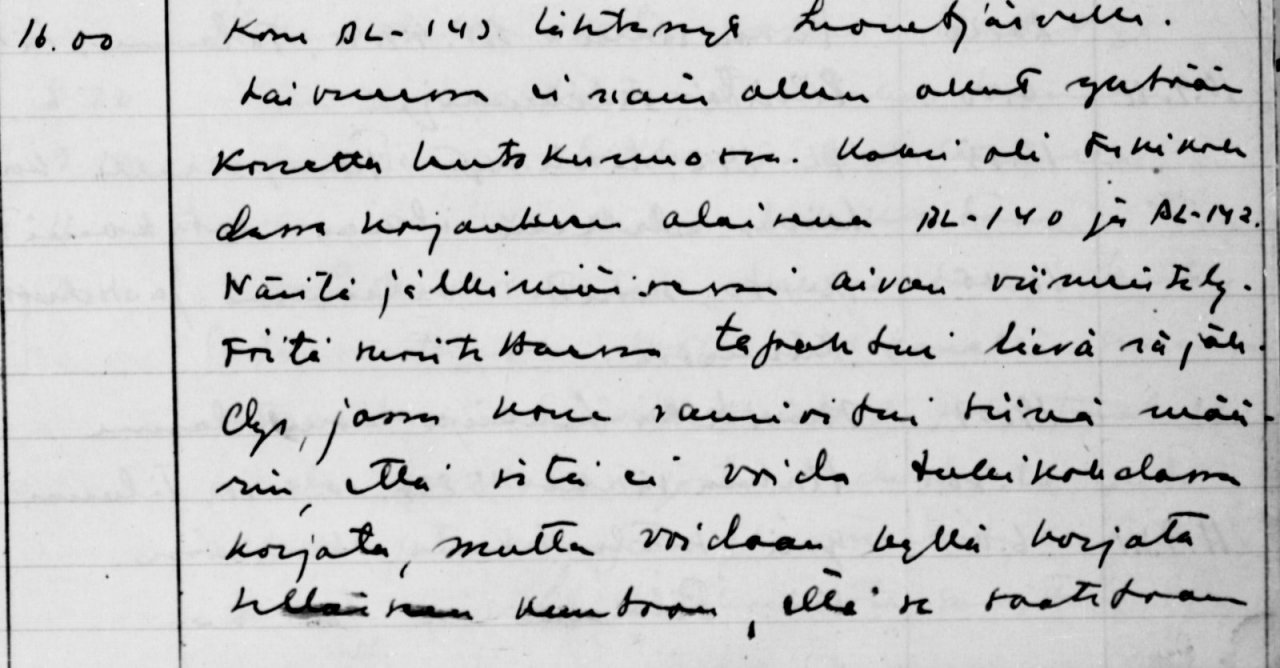 16.00 Kone BL-143 lähtenyt Luonetjärvelle.
Laivueessa ei näin ollen ollut yhtään
konetta lentokunnossa. Kaksi oli tukikoh
dassa korjauksen alaisena BL-140 ja BL-142.
Näistä jälkimmäisessä aivan viimeistely-
töitä suoritettaessa tapahtui lievä räjäh-
dys, jossa kone vaurioitui siinä mää-
rin, että sitä ei voida tukikohdassa
korjata, mutta voidaan kyllä korjata
sellaiseen kuntoon, että se saatetaan